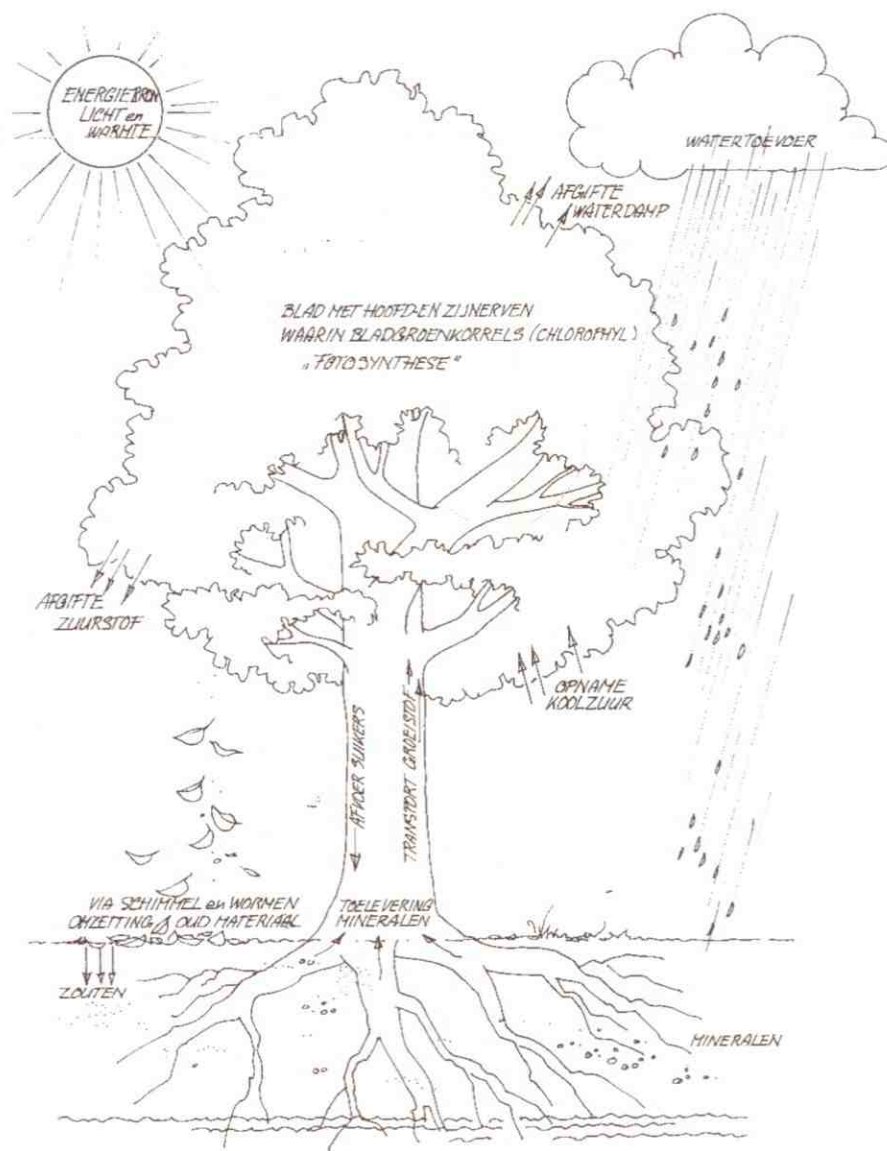 ENERGIEBRON
LICHT en
WARMTE
WATERTOEVOER
AFGIFTE
WATERDAMP
BLAD MET HOOFD-EN ZIJNERVEN
WAARIN BLADGROENKORRELS (CHLOROPHYL)
„FOTOSYNTHESE"
AFGIFTE
ZUURSTOF
OPNAME
KOOLZUUR
AFVOER SUIKERS
TRANSPORT GROEISTOF
VIA SCHIMMEL en WORMEN
OMZETTING OUD MATERIAAL
TOELEVERING
MINERALEN
ZOUTEN
MINERALEN